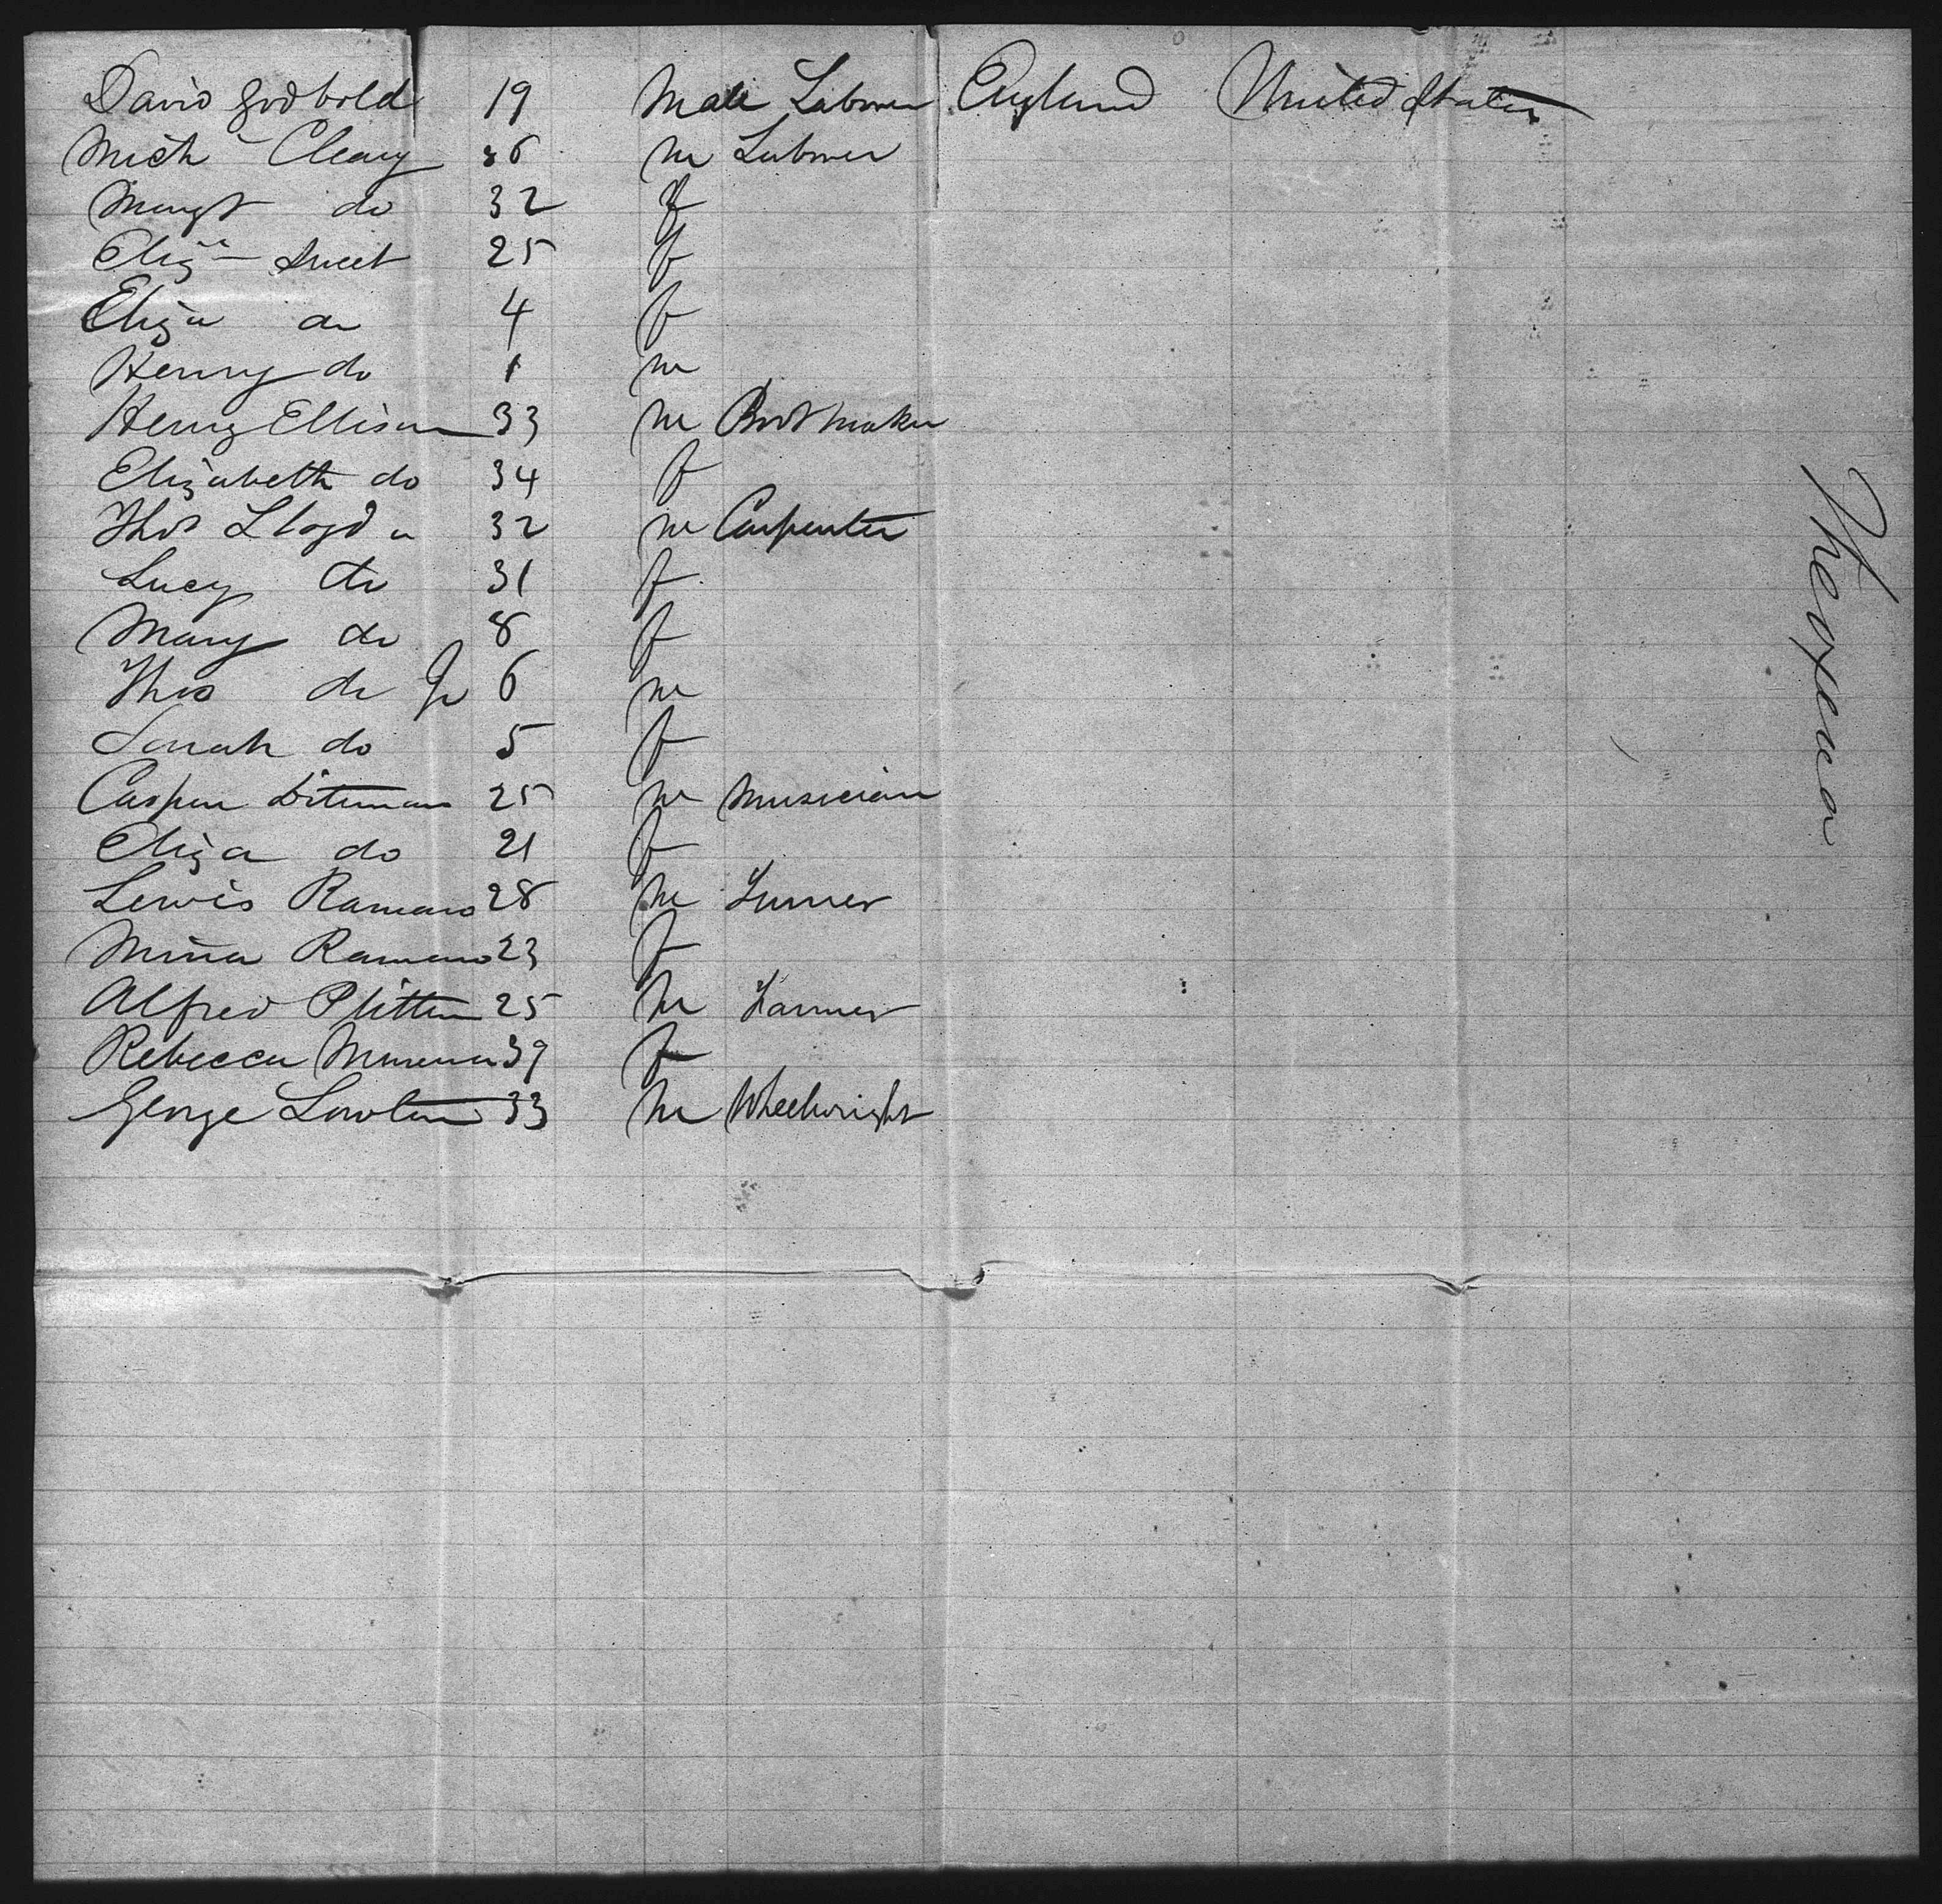 David Godbold 19 Male Laborer England United States
Mich Cleary 36 m Laborer
Margt do 32 f
Eliz Sweet 25 f
Eliza do 4 f
Henry do 1 m
Henry Ellison 33 m Bootmaker
Elizabeth do 34 f
Thos Lloyd 32 m Carpenter
Lucy do 31 f
Mary do 8 f
Thos do Jr 6 m
Sarah do 5 f
Casper Diteman 25 m Musician
Eliza do 21 f
Lewis 28 m
Mina 23 f
Alfred 25 m Farmer
Rebecca 39 f
George Lowton 33 m Wheelwright
Theoxena